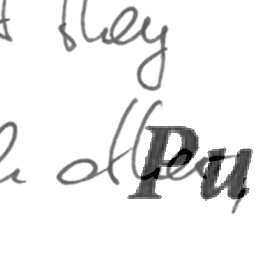 they
other,
Pu